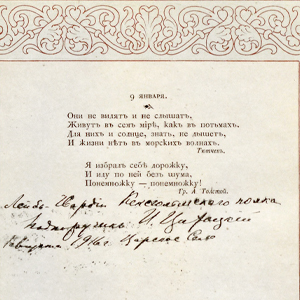 9 ЯНВАРЯ.
Они не видятъ и не слышатъ,
Живутъ въ семъ мірѣ, какъ въ потьмахъ,
Для нихъ и солнце, знать, не дышетъ,
И жизни нѣтъ въ морскихъ волнахъ.
Тютчевъ.
Я избралъ себѣ дорожку,
И иду по ней безъ шума,
Понемножку — понемножку!
Гр. А Толстой.
Лейбъ-Гвардіи Кексгольмскаго полка
подпоручикъ
1916 г. Царское Село